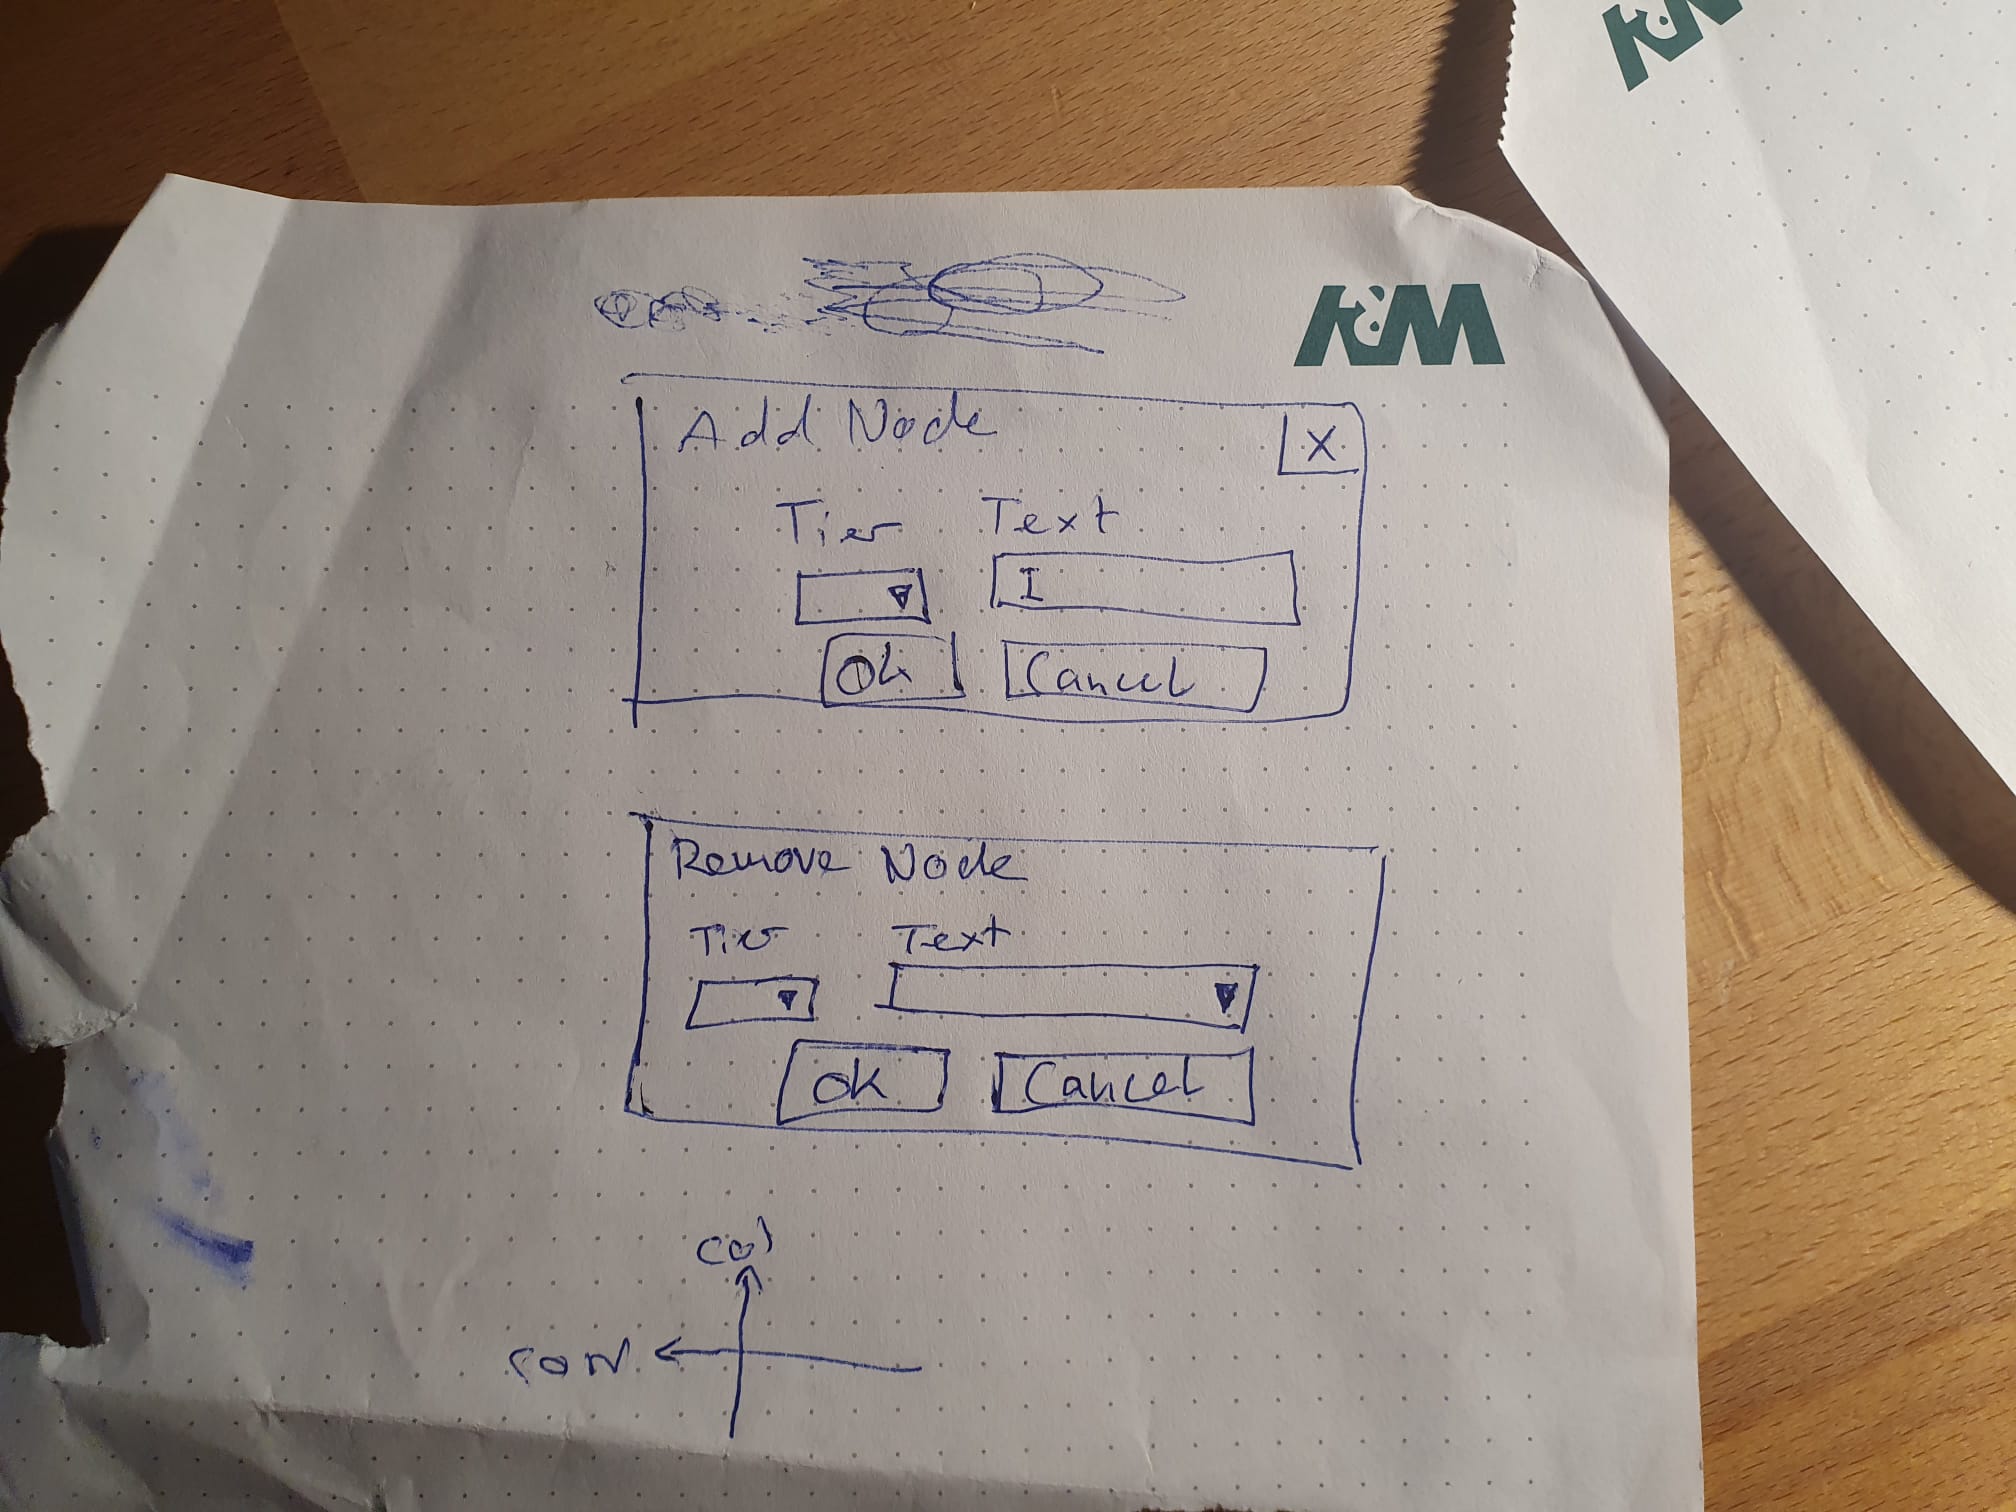 Add Node X
Tier Text
I
Ok Cancel
Remove Node
Tier Text
Ok Cancel
col
row